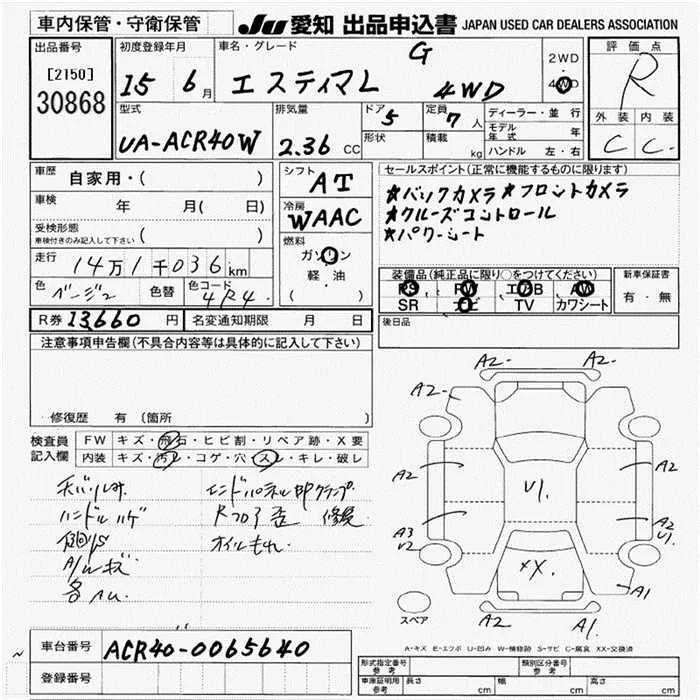 車内保管・守衛保管
JU 愛知 出品申込書 JAPAN USED CAR DEALERS ASSOCIATION
出品番号
[2150]
30868
初度登録年月
15 6月
車名・グレード
G
エスティマL 4WD
2WD
4WD
評価点
R
外装 内装
C C
型式
UA-ACR40W
排気量
2.36 CC
ドア
5
形状
定員
7人
積載
kg
ディーラー・並行
モデル年式 年
ハンドル 左・右
車歴
自家用・( )
車検
年 月( 日)
受検形態
車検付きのみ記入して下さい ( )
走行
14万1千036km
色
ベージュ
色替
色コード
4R4
シフト
AT
冷房
WAAC
燃料
ガソリン
軽・油
( )
セールスポイント(正常に機能するものに限ります)
★バックカメラ★フロントカメラ
★クルーズコントロール
★パワーシート
装備品(純正品に限り○をつけてください)
PS PW エアB AW
SR ナビ TV カワシート
新車保証書
有・無
後日品
R券 13,660円
名変通知期限 月 日
注意事項申告欄(不具合内容等は具体的に記入して下さい)
修復歴 有 〔箇所
検査員記入欄
FW キズ・飛石・ヒビ割・リペア跡・X要
内装 キズ・汚レ・コゲ・穴・スレ・キレ・破レ
ハンドルハゲ
A/Wキズ
エンドパネル
Rフロア歪 修復
オイルもれ
A2 A2
A2
A2 A2
U1
A3
U2
A2
U1
XX
A1
A2 A1
スペア
A-キズ E-エクボ U-凹み W-補修跡 S-サビ C-腐食 XX-交換済
車台番号
ACR40-0065640
登録番号
形式指定番号
参考
類別区分番号
参考
車庫証明用
参考
長さ cm 巾 cm 高さ cm